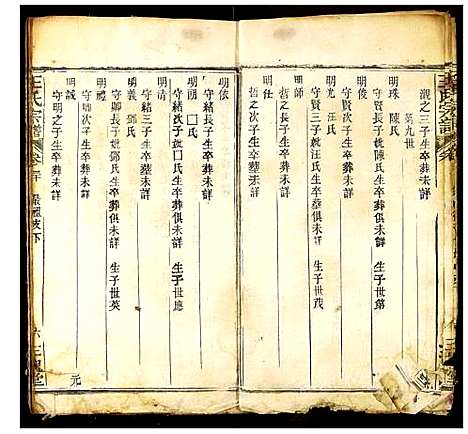 觀之三子生卒葬未詳
第九世
明珠 陳氏
守賢長子娶陳氏生卒葬俱未詳 生子世第
明俊
守賢次子生卒葬未詳
明光 汪氏
守賢三子娶汪氏生卒葬俱未詳 生子世茂
明師
哲之長子生卒葬未詳
明仕
哲之次子生卒墓未詳
明依
守緒長子生卒葬未詳
明顯 囗氏
守緒次子娶囗氏生卒葬俱未詳 生子世應
明清
守緒三子生卒墓未詳
明義 鄧氏
守卿長子娶鄧氏生卒葬俱未詳 生子世英
守卿次子生卒葬未詳
明誠
守明之子生卒葬未詳
元
王氏宗譜
卷三
六 三槐堂